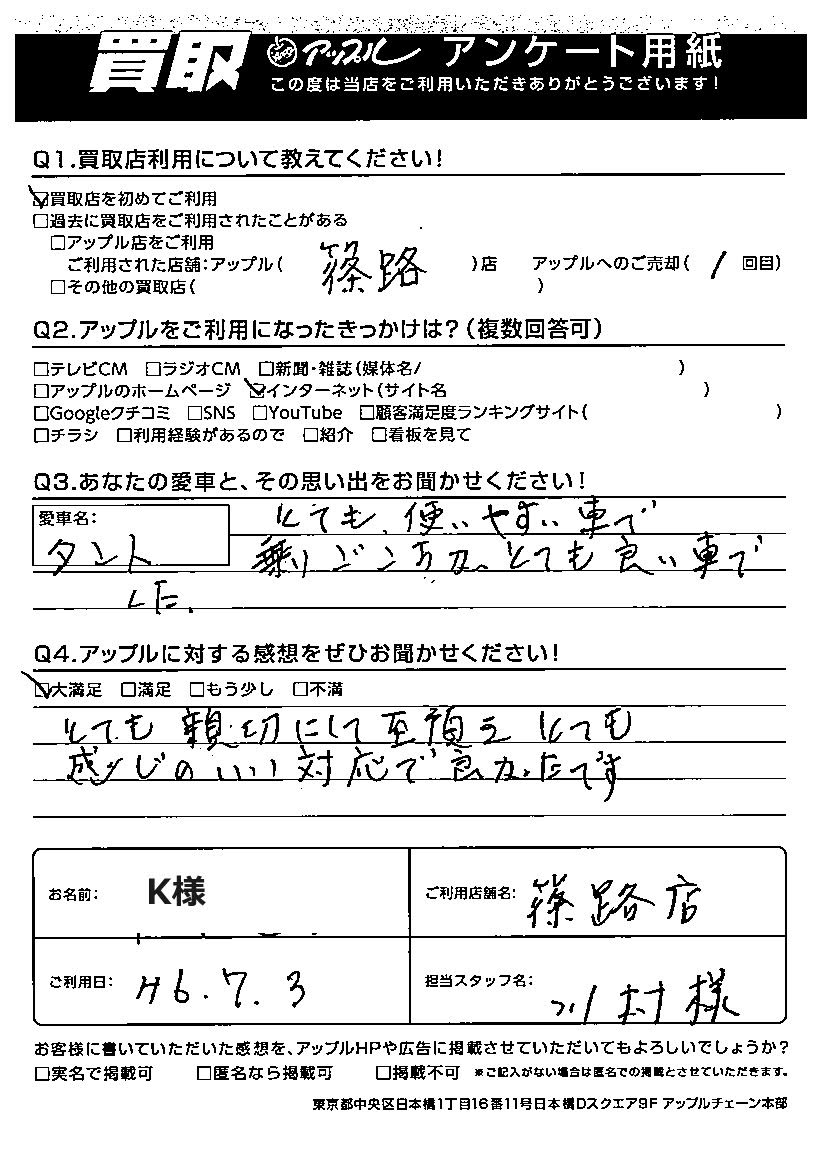 買取 アップル アンケート用紙
この度は当店をご利用いただきありがとうございます!
Q1.買取店利用について教えてください!
☑買取店を初めてご利用
□過去に買取店をご利用されたことがある
□アップル店をご利用
ご利用された店舗:アップル( 篠路 )店 アップルへのご売却( 1 回目)
□その他の買取店( )
Q2.アップルをご利用になったきっかけは?(複数回答可)
□テレビCM □ラジオCM □新聞・雑誌(媒体名/ )
□アップルのホームページ ☑インターネット(サイト名 )
□Googleクチコミ □SNS □YouTube □顧客満足度ランキングサイト( )
□チラシ □利用経験があるので □紹介 □看板を見て
Q3.あなたの愛車と、その思い出をお聞かせください!
愛車名:
タント
とても、使いやすい車で
乗りごこちよく、とても良い車で
した。
Q4.アップルに対する感想をぜひお聞かせください!
☑大満足 □満足 □もう少し □不満
とても親切にして 頂き とても
感じのいい対応で良かったです
お名前: K様
ご利用店舗名: 篠路店
ご利用日: 7. 3
担当スタッフ名: 川村様
お客様に書いていただいた感想を、アップルHPや広告に掲載させていただいてもよろしいでしょうか?
□実名で掲載可 □匿名なら掲載可 □掲載不可 ※ご記入がない場合は匿名での掲載とさせていただきます。
東京都中央区日本橋1丁目16番11号日本橋Dスクエア9F アップルチェーン本部